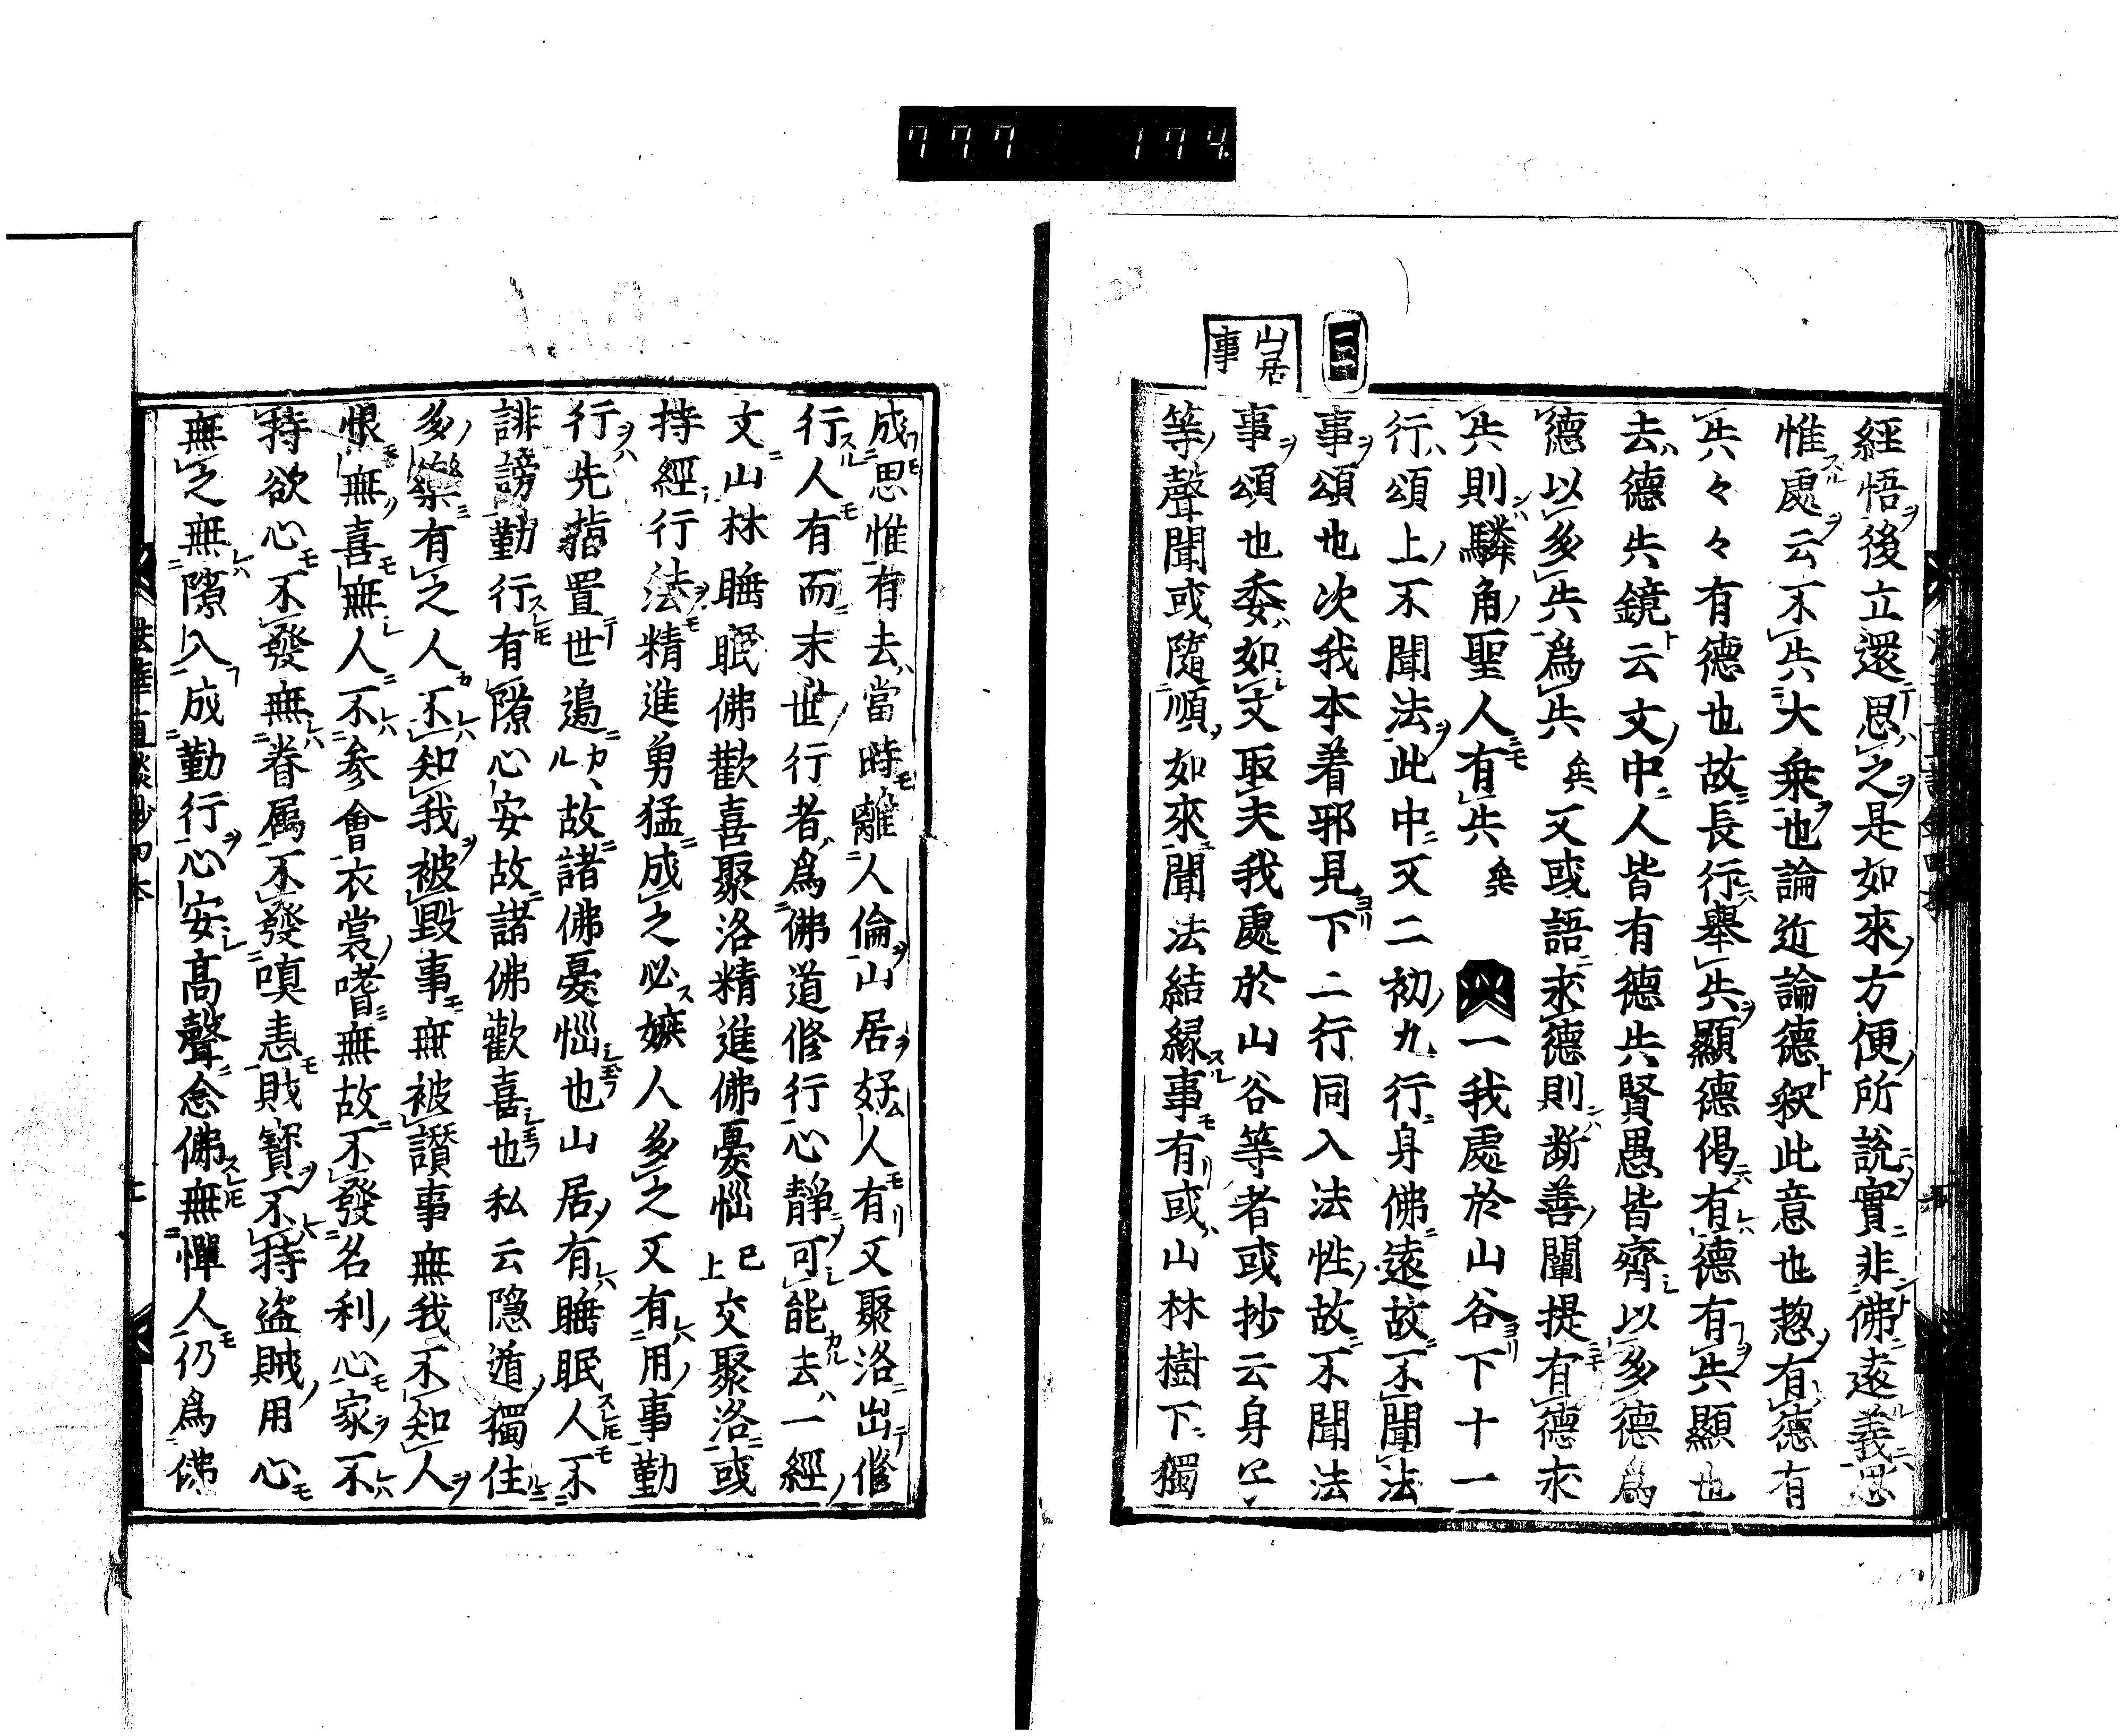 777 174
三
山居
事
經悟後立還思之是如來方便所說實非佛遠義思
惟處云不失大乗也論近論德釈此意也惣有德有
失々々有德也故長行舉失顯德偈有德有失顯也
去德失鏡云文中人皆有德失賢愚皆齊以多德為
德以多失為失矣又或語求德則断善闡提有德求
失則驎角聖人有失矣 一我處於山谷下十一
行頌上不聞法此中又二初九行身佛遠故不聞法
事頌也次我本着邪見下二行同入法性故不聞法
事頌也委如文取夫我處於山谷等者或抄云身子
等聲聞或隨順如來聞法結縁事有或山林樹下獨
成思惟有去當時離人倫山居好人有又聚洛出修
行人有而末世行者為佛道修行心靜可能去一經
文山林睡眠佛歡喜聚洛精進佛憂惱已上交聚洛或
持經行法精進勇猛成之必嫉人多之又有用事勤
行先指置世邊故諸佛憂惱也山居有睡眠人不
誹謗勤行有隙心安故諸佛歡喜也私云隠遁獨住
多樂有之人不知我被毀事無被讃事無我不知人
恨無喜無人不参會衣裳嗜無故不發名利心家不
持欲心不發無眷属不發嗔恚賎寳不持盗賊用心
無之無隙入成勤行心安高聲念佛無憚人仍為佛